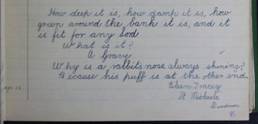 How deep it is, how dank it is, how
green around the bank it is, and it
is fit for any
What is it?
A Grave
Why is a rabbit's nose always shining?
Because his puff is at the other end.
St Michaels